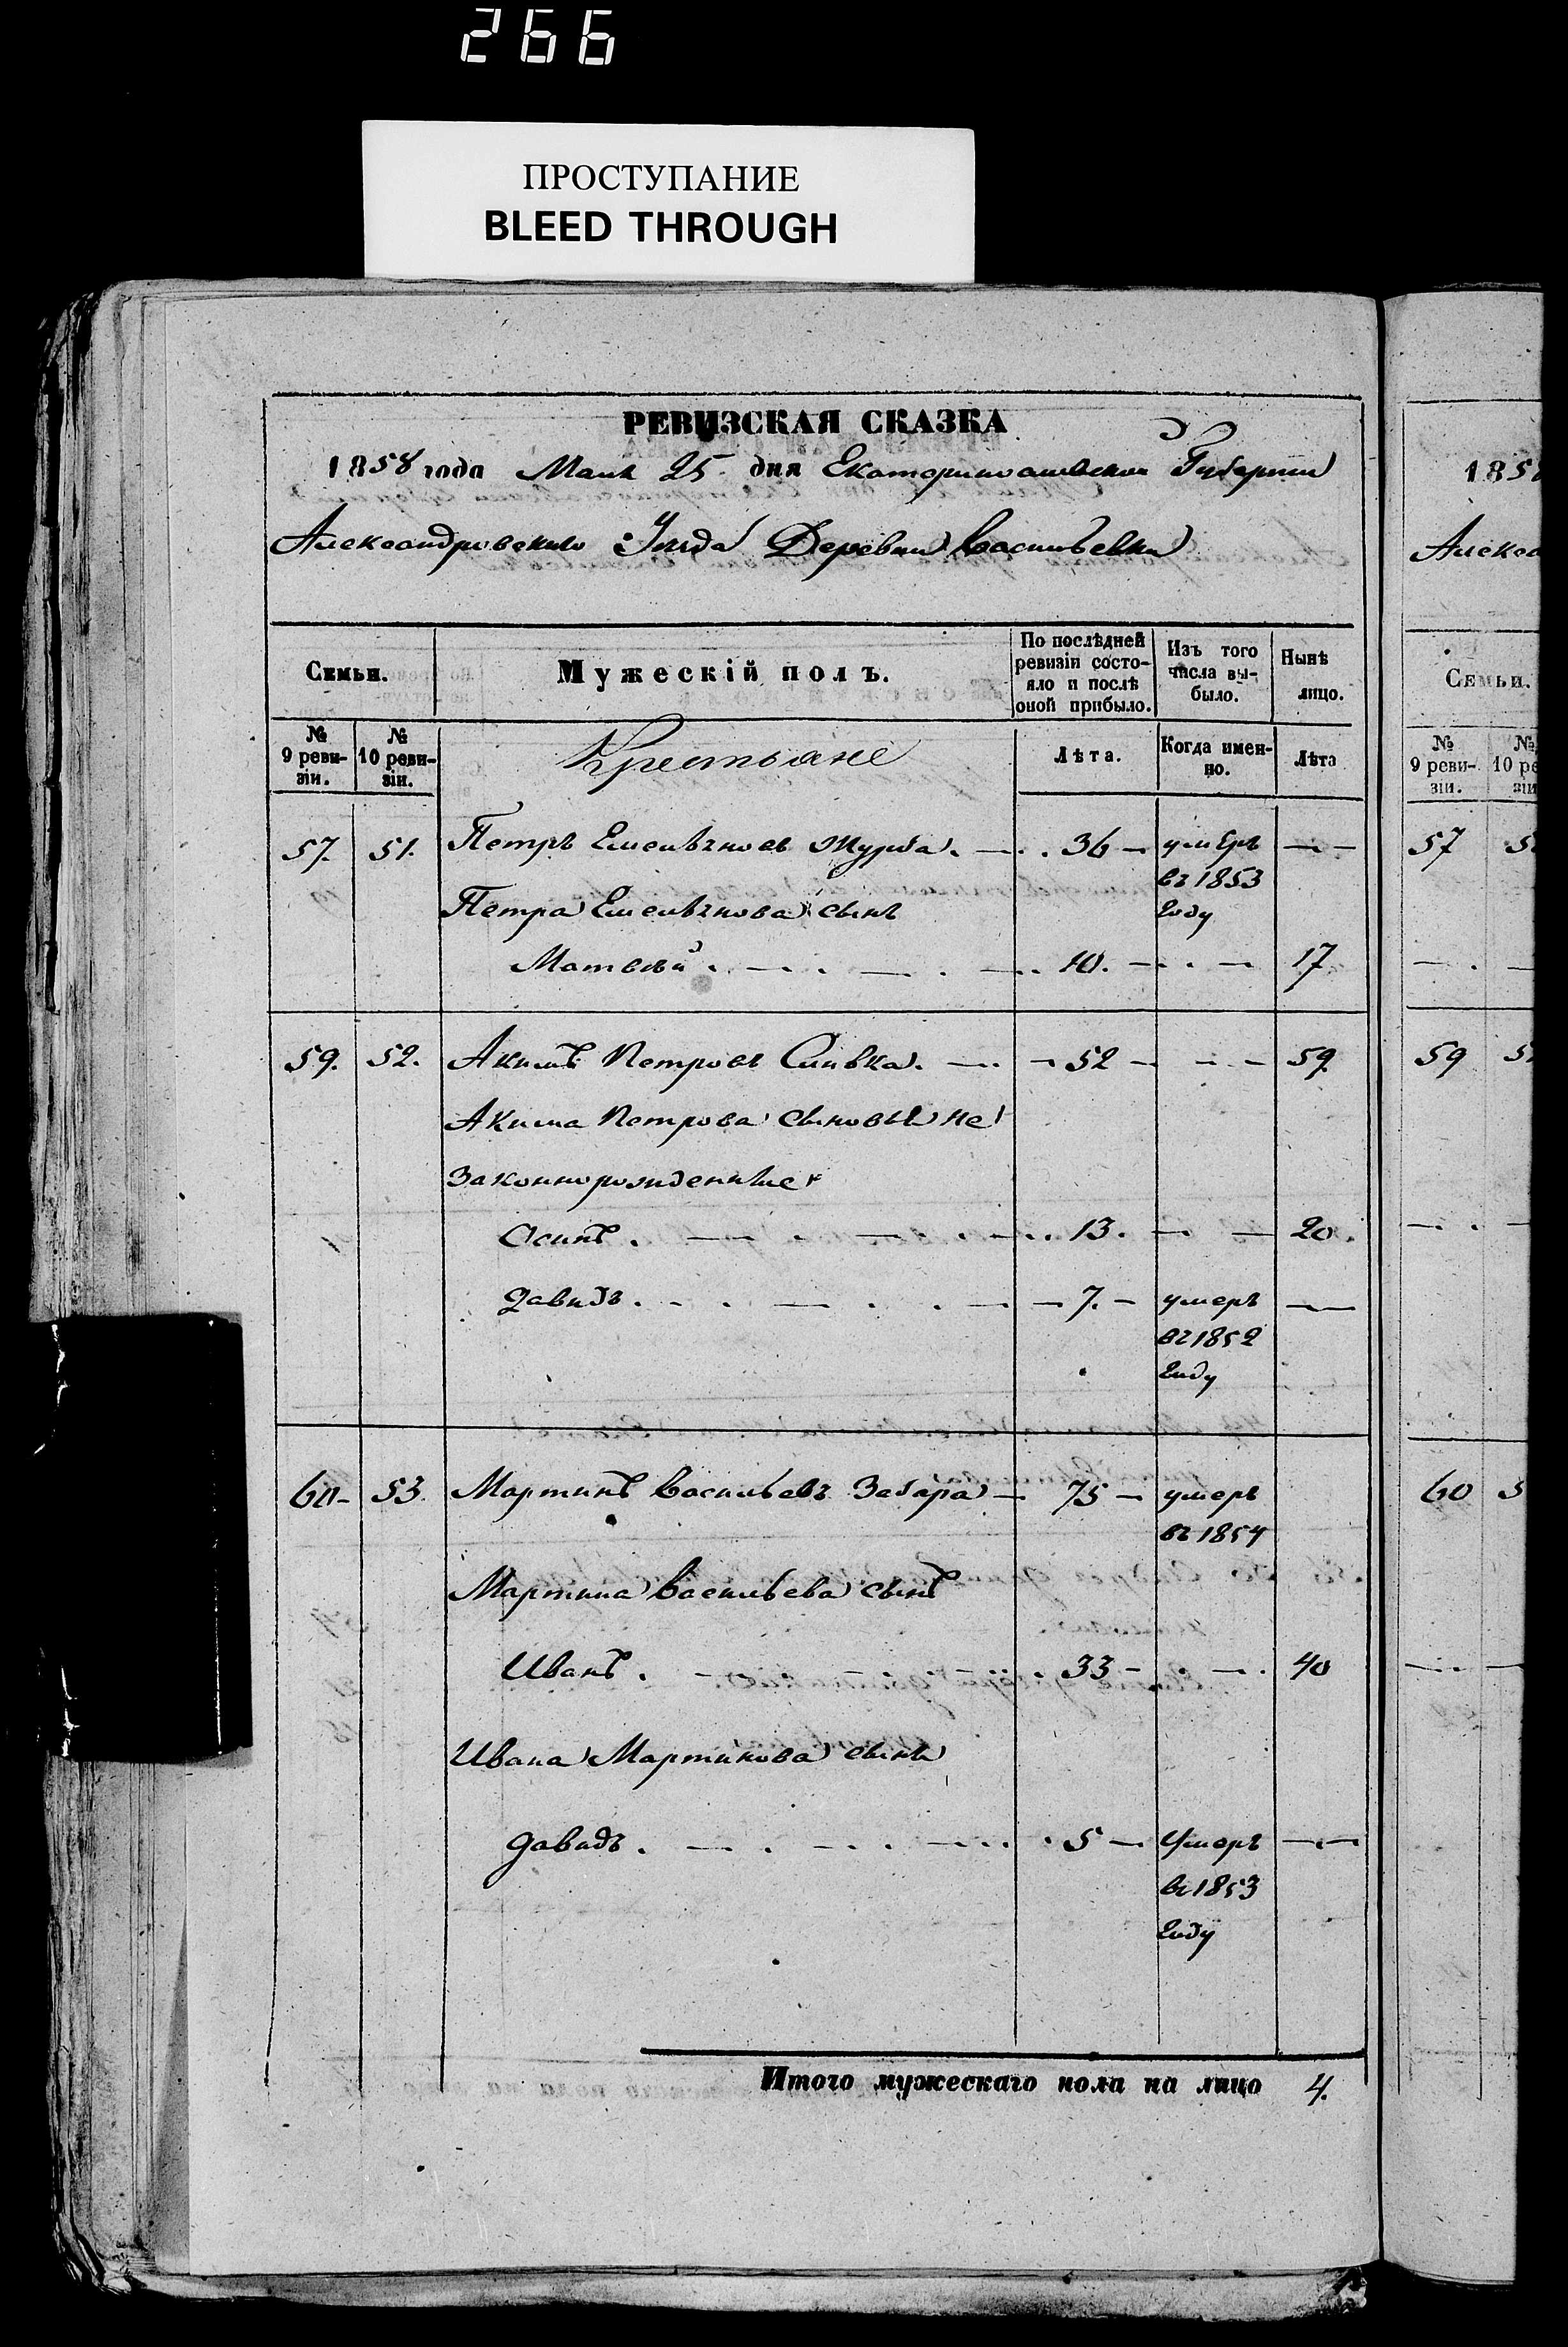 266
ПРОСТУПАНИЕ
BLEED THROUGH
РЕВИЗСКАЯ СКАЗКА
1858 года Маия 25 дня Екатеринославской Губернии
Александровского Уезда Деревни Васильевки
Семьи.
Мужескій полъ.
По послѣдней ревизіи состо-
яло и послѣ
оной прибыло.
Изъ того
числа вы-
было.
Нынѣ
лицо.
№
9 реви-
зіи.
№
10 реви-
зіи.
Крестьяне
Лѣта.
Когда имен-
но.
Лѣта
57. 51. Петръ Емельяновъ Журба. 36 умеръ
въ 1853
Петра Емельянова сынъ году
Матвѣй. 10. 17
59. 52. Акимъ Петровъ Сливка. 52 59.
Акима Петрова сыновья не
законнорожденные
Осипъ. 13. 20.
Давидъ. 7. умеръ
въ 1852
году
60 53. Мартинъ Васильевъ Забара 75 умеръ
въ 1854
Мартина Васильева сынъ
Иванъ. 33 40
Ивана Мартинова сынъ
Давидъ. 5 Умеръ
въ 1853
году
Итого мужескаго пола на лицо 4.
185
Алекса
Семьи.
№
9 реви-
зіи.
№
10 ре
зіи
57 5
59 5
60 5